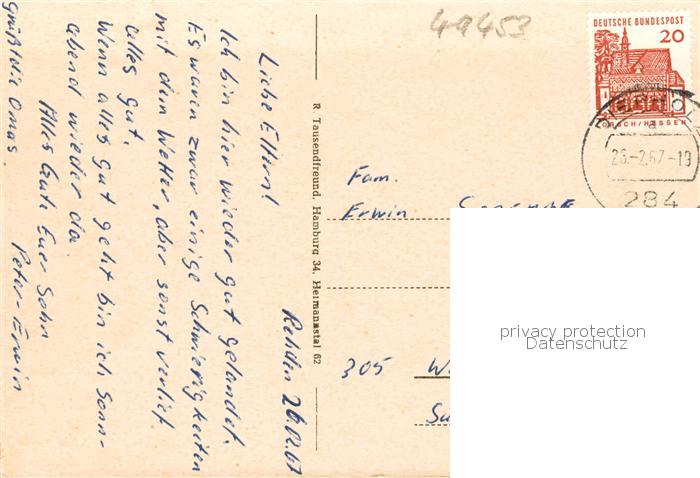 49453
DEUTSCHE BUNDESPOST
20
LORSCH/HESSEN
a
26.-2.67-19
284
Rehden 26.02.67
Liebe Eltern!
Ich bin hier wieder gut gelandet.
Es waren zwar einige Schwierigkeiten
mit dem Wetter, aber sonst verlief
alles gut.
Wenn alles gut geht bin ich Sonn-
abend wieder da.
Alles Gute Euer Sohn
Peter-Erwin
grüßt die Omas.
R Tausendfreund, Hamburg 34, Hermannstal 62
Fam.
Erwin
305 W
privacy protection
Datenschutz